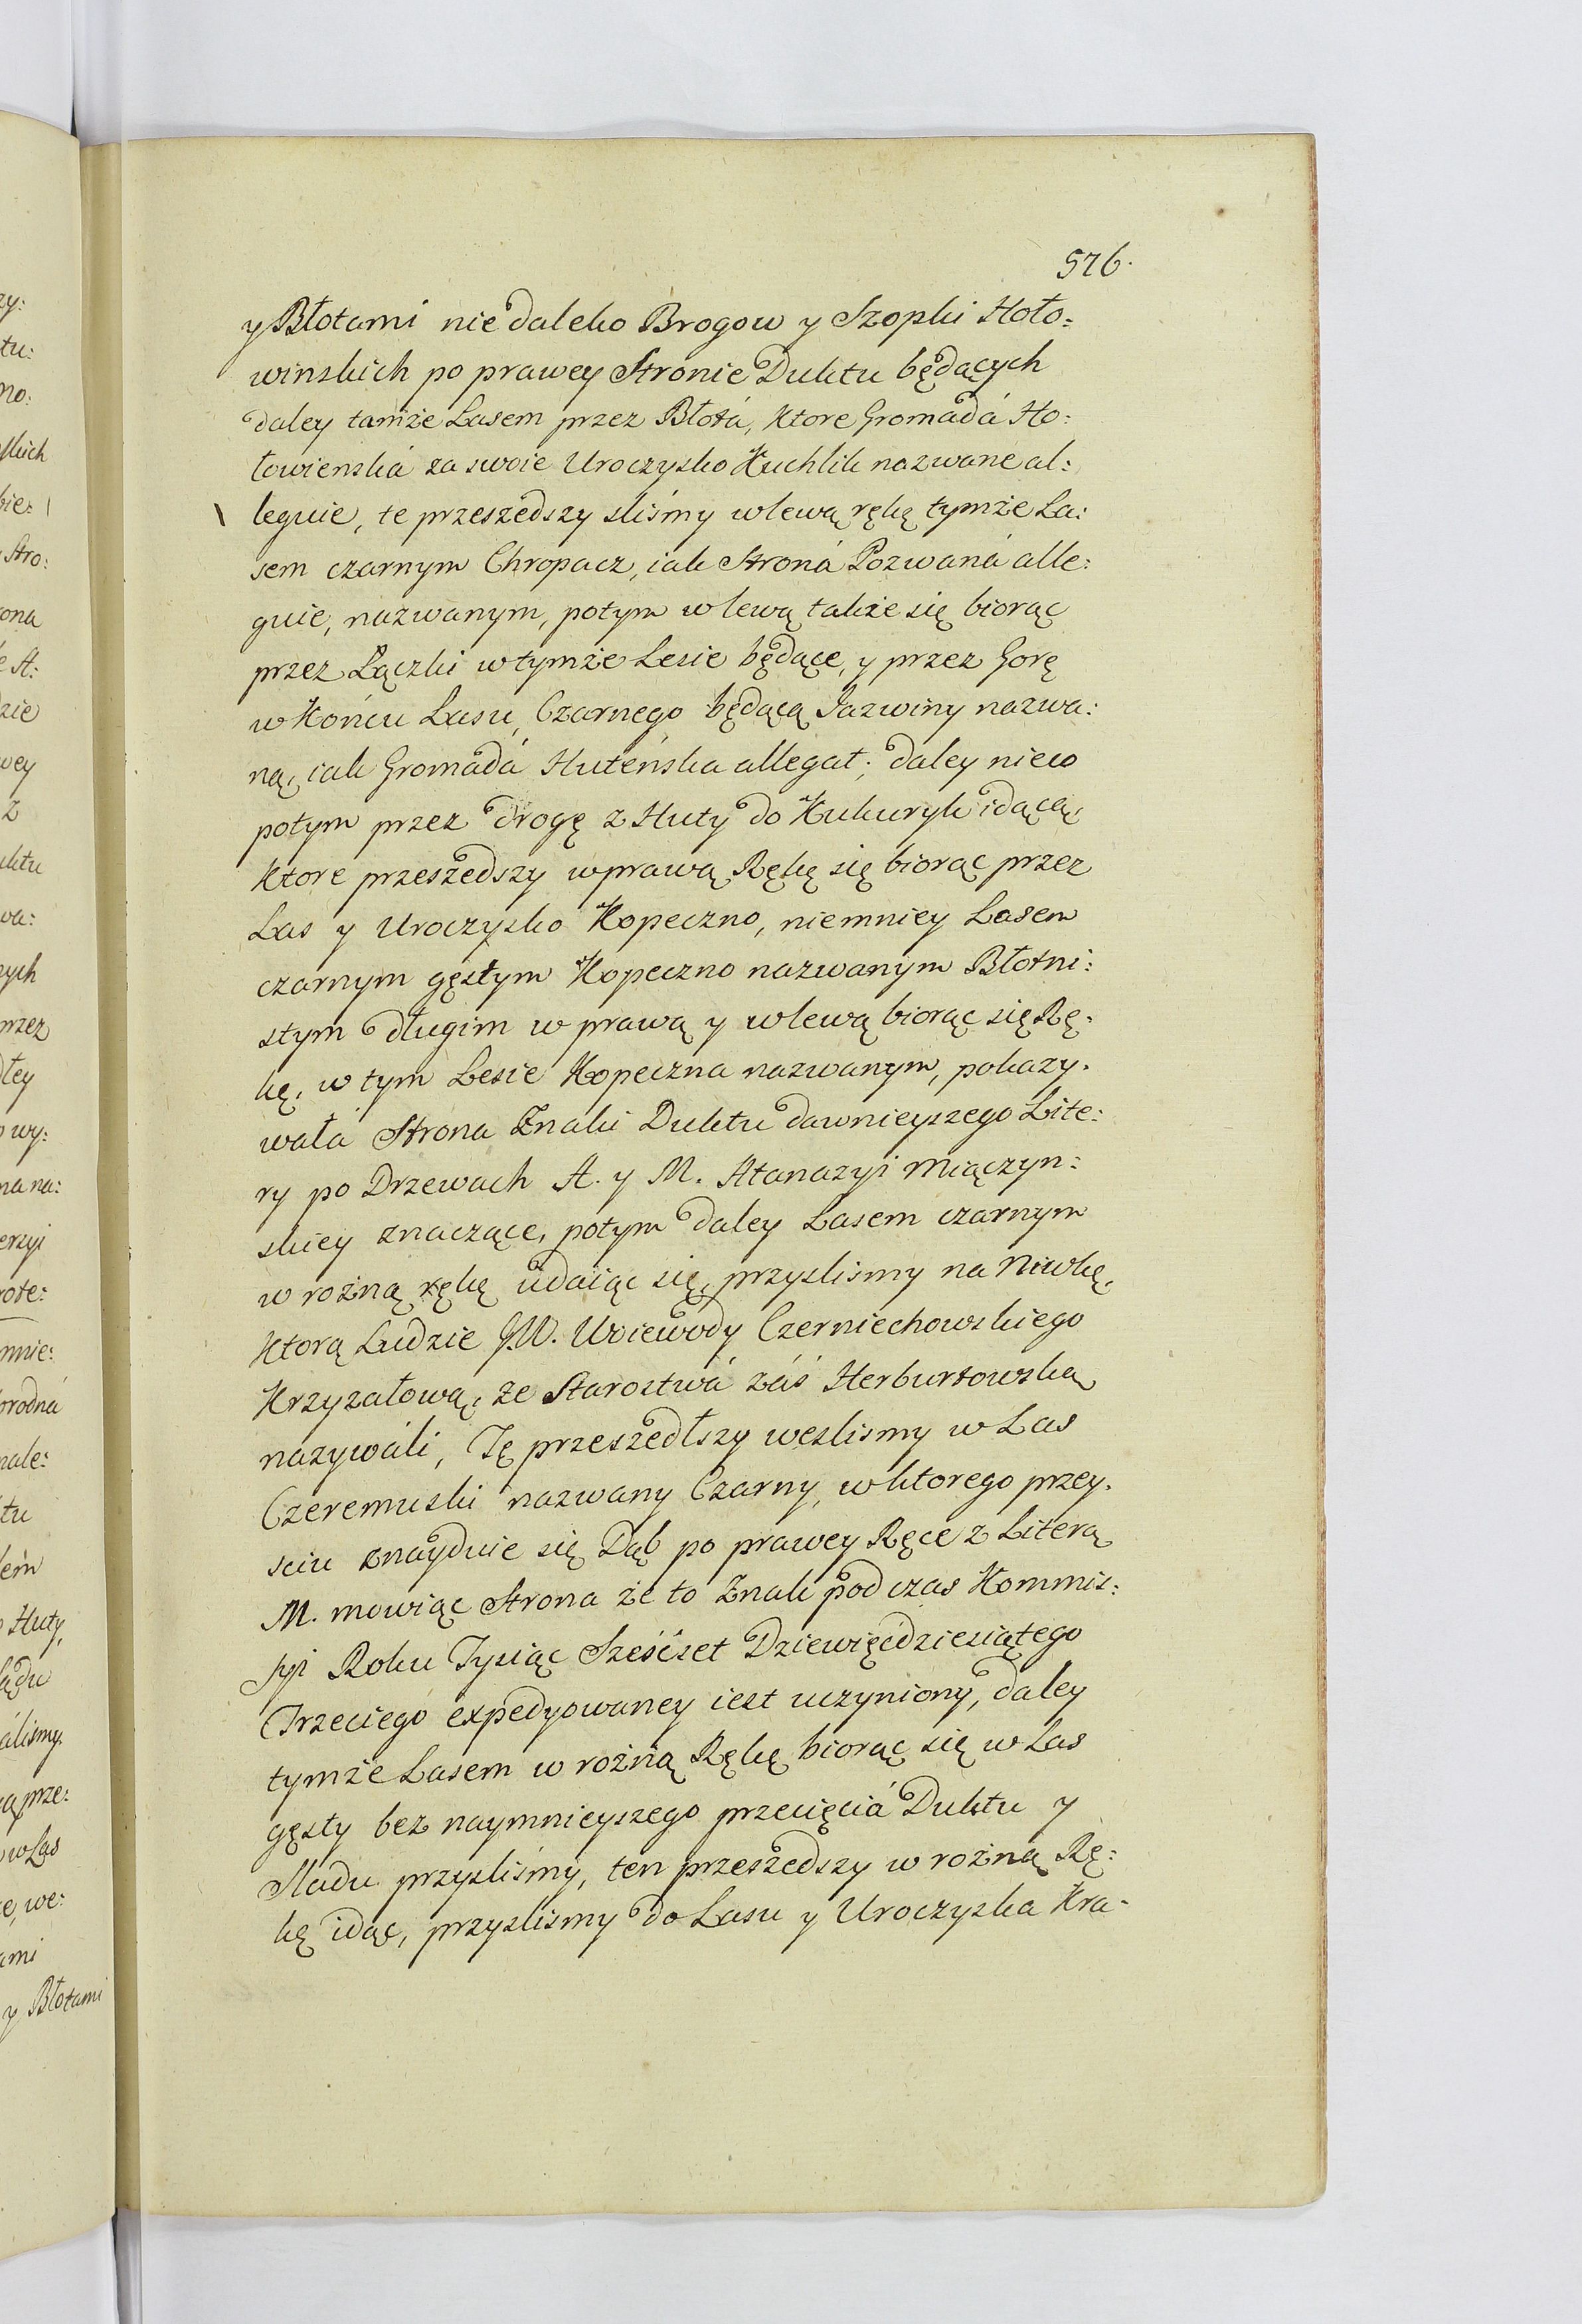 576.
y Błotami niedaleko Brogow y Szopki Hoło:
winskich po prawey Stronie Duktu będących
daley tamże Lasem przez Błotá, ktore Gromadá Ho:
łowienská za swoie Uroczysko Kuchlik nazwane al:
leguie, te przeszedszy sliśmy w lewą rękę tymże La:
sem czarnym Chropacz, iak Stroná Pozwaná alle:
guie, nazwanym, potym w lewą także się biorąc
przez Łączki w tymże Lesie będące, y przez Gorę
w Końcu Lasu Czarnego będącą Jazwiny nazwa:
ną, iak Gromadá Huteńska allegat; daley nieco
potym przez drogę z Huty do Kukuryk idącą,
ktore przeszedszy w prawą Rękę się biorąc przez
Las y Uroczysko Kopeczno, niemniey Lasem
czarnym gęstym Kopeczno nazwanym Błotni:
stym długim w prawą y w lewą biorąc się Rę:
kę, w tym Lesie Kopeczna nazwanym, pokazy:
wałá Strona Znaki Duktu dawnieyszego Lite:
ry po Drzewach A. y M. Atanazyi Miączyn:
skiey znaczące, potym daley Lasem czarnym
w rożną rękę udaiąc się, przyslismy na Niwkę,
ktorą Ludzie J.W. Woiewody Czerniechowskiego
Krzyzałową, ze Starostwá záś Herburtowską
nazywáli, Tę przeszedłszy weslismy w Las
Czeremuski nazwany Czarny, w ktorego przey:
sciu znayduie się Dąb po prawey Ręce z Literą
M. mowiąc Strona że to Znak podczas Kommis:
syi Roku Tysiąc Sześćset Dziewięćdziesiątego
Trzeciego expedyowaney iest uczyniony, daley
tymże Lasem w rożną Rękę biorąc się w Las
gęsty bez naymnieyszego przecięciá Duktu y
Sladu przysliśmy, ten przeszedszy w rożną Rę:
kę idąc, przyslismy do Lasu y Uroczyska Kra-
y Błotami